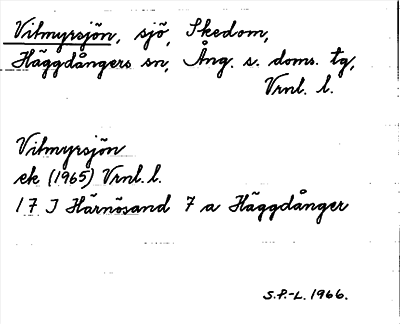 Vitmyrsjön, sjö, Skedom,
Häggdångers sn, Ång. s. doms. tg,
Vrnl. l.
Vitmyrsjön
ek (1965) Vrnl. l.
17 J Härnösand 7 a Häggdånger
S.P.-L. 1966.